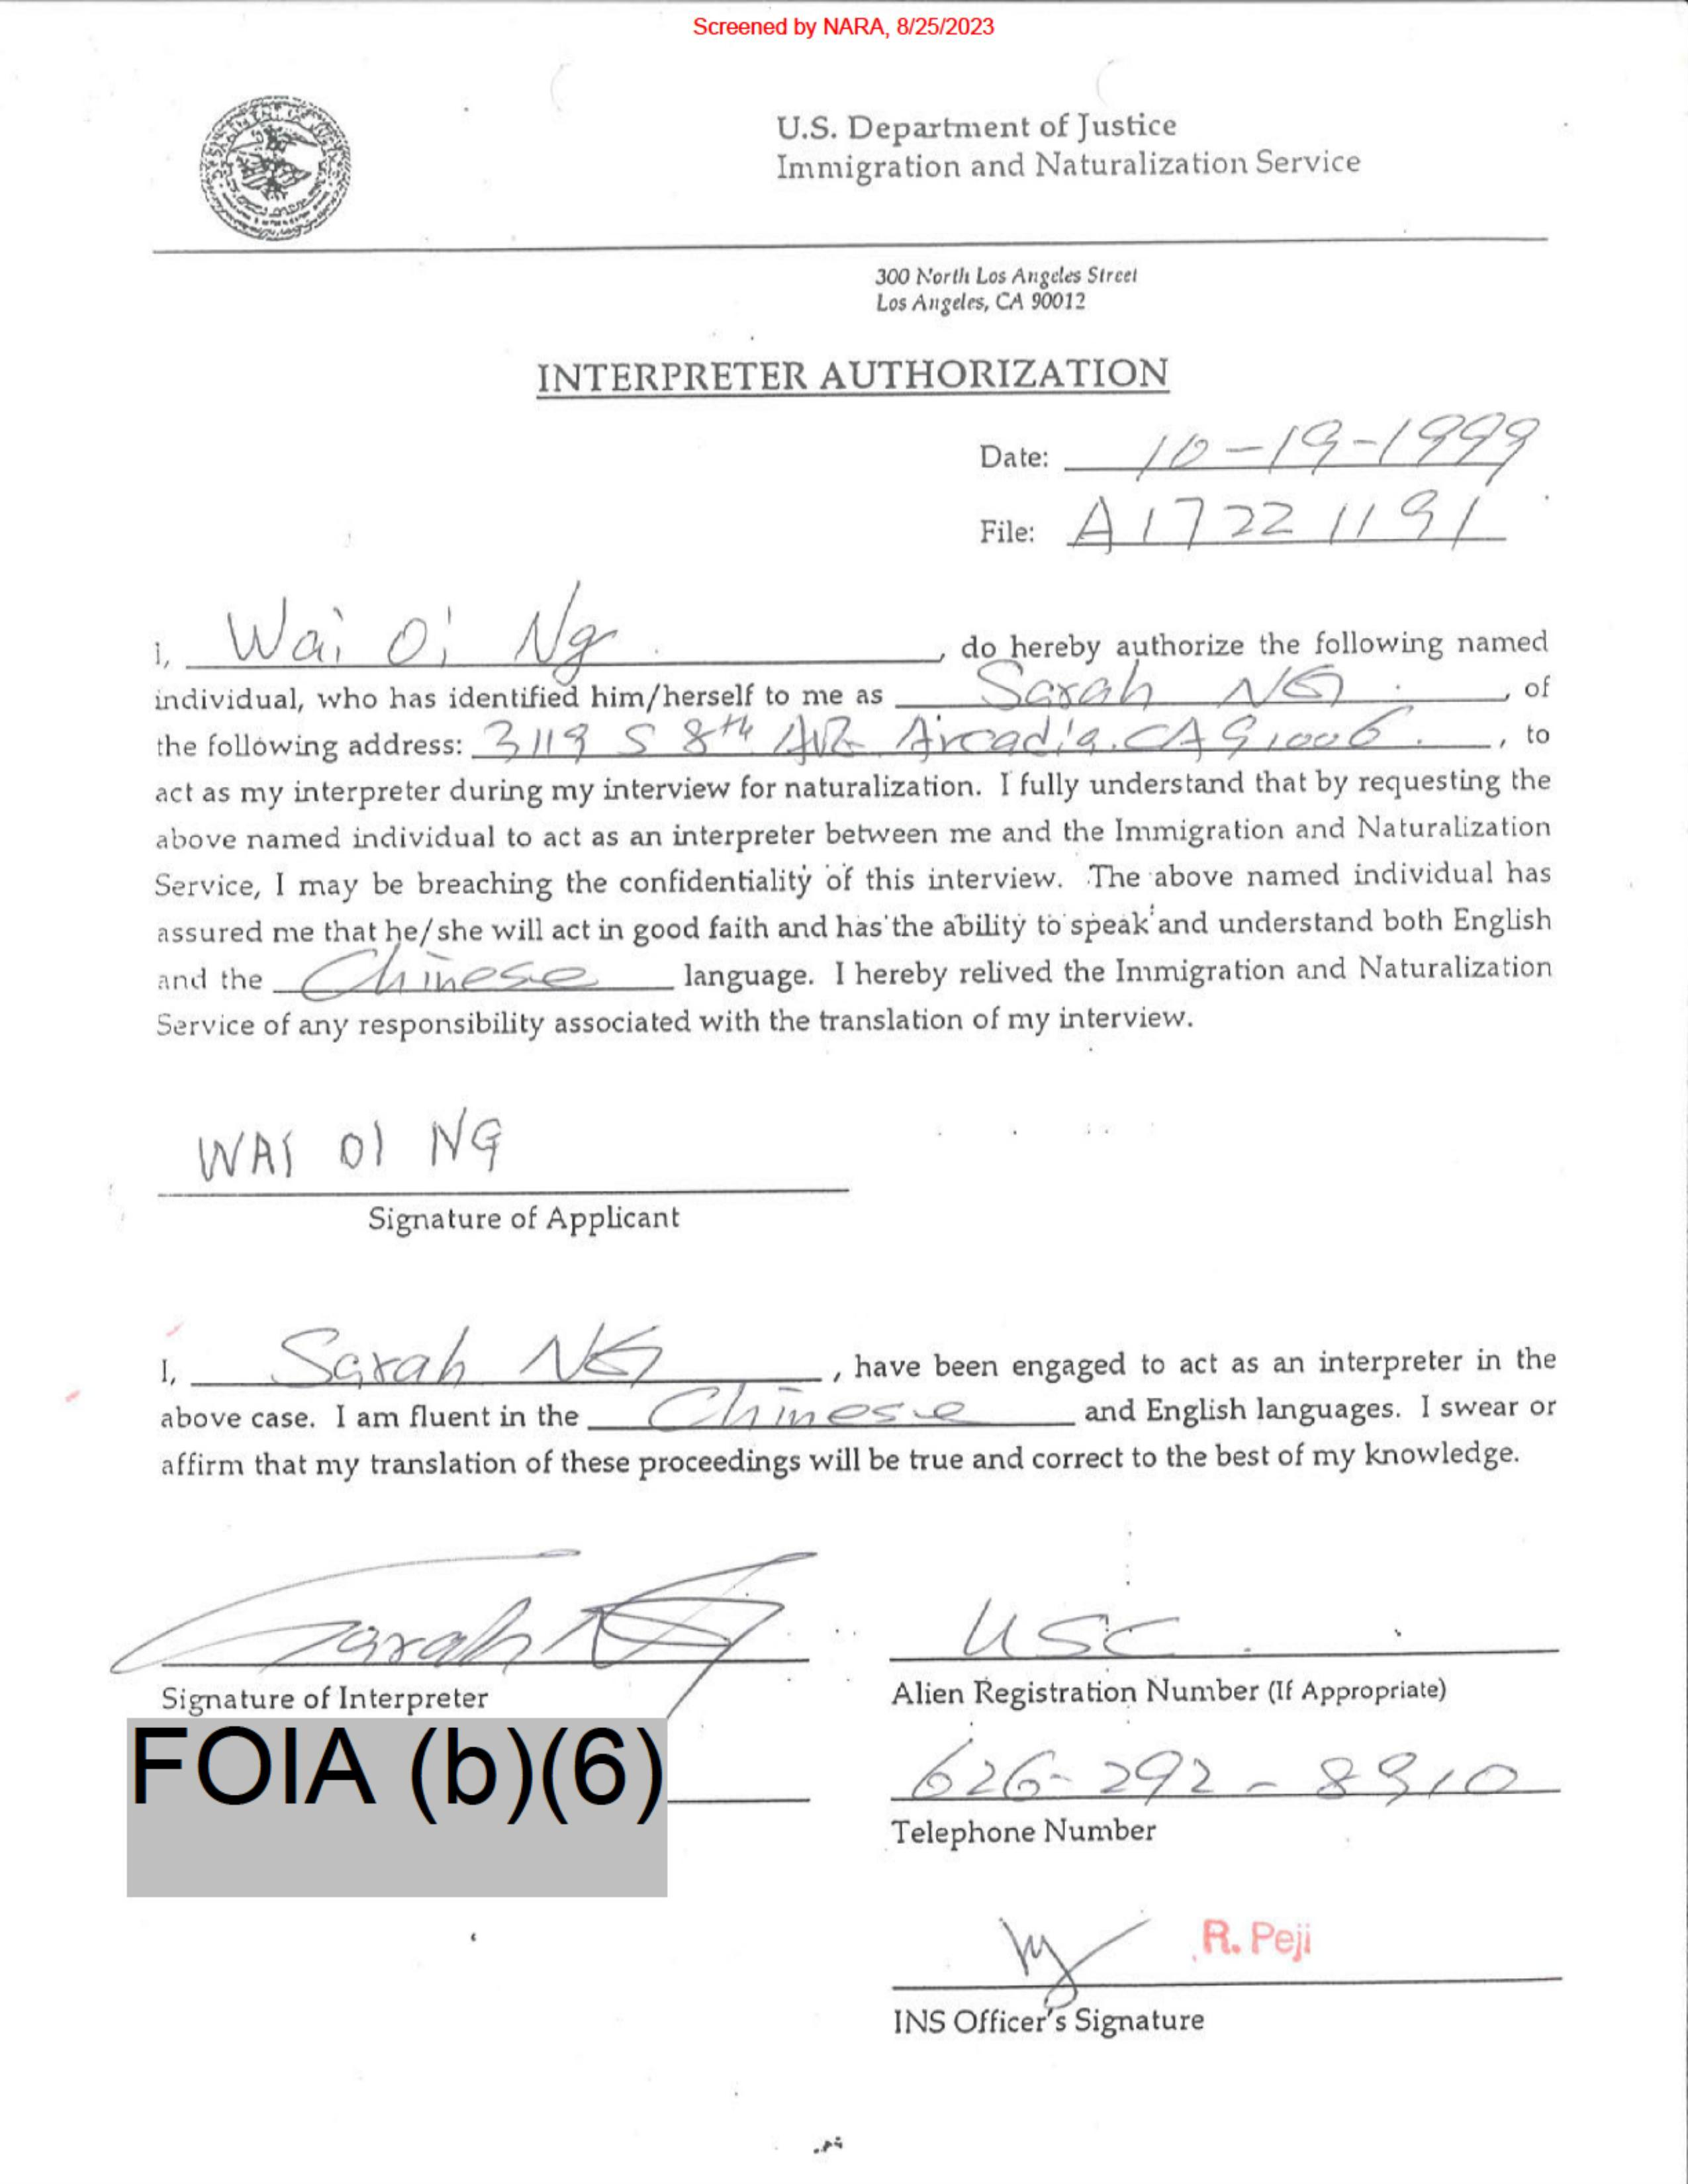 Screened by NARA, 8/25/2023
U.S. Department of Justice
Immigration and Naturalization Service
300 North Los Angeles Street
Los Angeles, CA 90012
INTERPRETER AUTHORIZATION
Date: 10-19-1999
File: A17221191
I, Wai Oi Ng, do hereby authorize the following named
individual, who has identified him/herself to me as Sarah NG, of
the following address: 3119 S 8th Ave Arcadia. CA 91006., to
act as my interpreter during my interview for naturalization. I fully understand that by requesting the
above named individual to act as an interpreter between me and the Immigration and Naturalization
Service, I may be breaching the confidentiality of this interview. The above named individual has
assured me that he/she will act in good faith and has the ability to speak and understand both English
and the Chinese language. I hereby relived the Immigration and Naturalization
Service of any responsibility associated with the translation of my interview.
WAI OI NG
Signature of Applicant
I, Sarah NG, have been engaged to act as an interpreter in the
above case. I am fluent in the Chinese and English languages. I swear or
affirm that my translation of these proceedings will be true and correct to the best of my knowledge.
Sarah Ng USC
Signature of Interpreter Alien Registration Number (If Appropriate)
FOIA (b)(6) 626-292-8910
Telephone Number
R. Peji
INS Officer's Signature